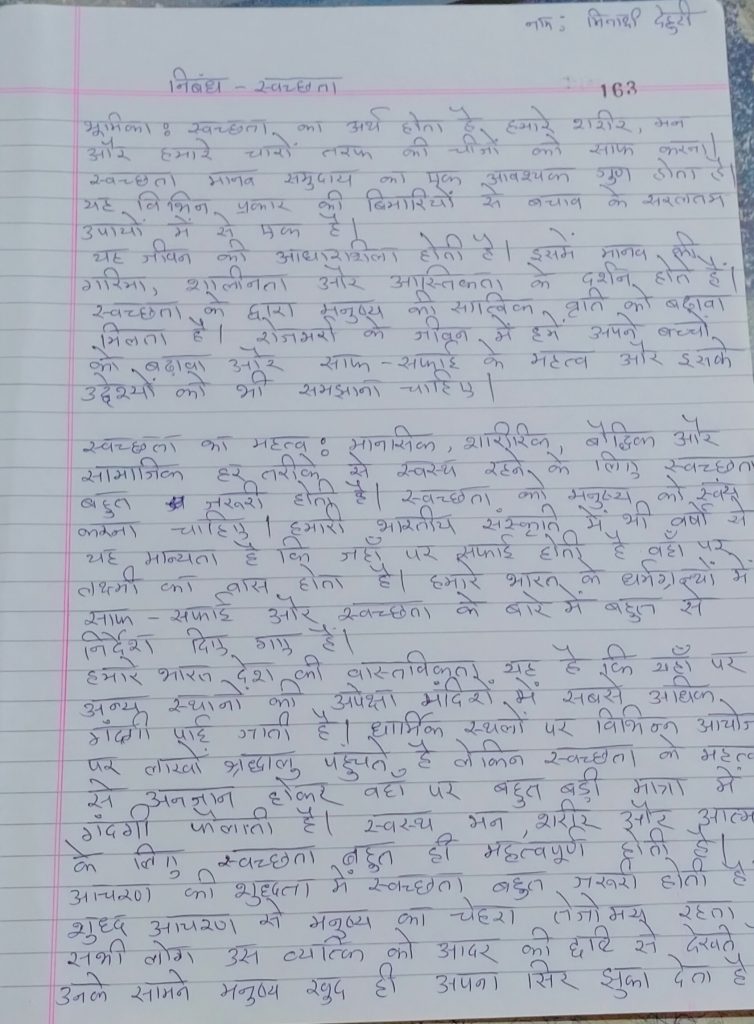 नाम: मिनाक्षी देहुरी
निबंध - स्वच्छता
163
भूमिका : स्वच्छता का अर्थ होता है हमारे शरीर, मन
और हमारे चारों तरफ की चीजों को साफ करना।
स्वच्छता मानव समुदाय का एक आवश्यक गुण होता है।
यह विभिन्न प्रकार की बिमारियों से बचाव के सरलतम
उपायों में से एक है।
यह जीवन की आधारशिला होती है। इसमें मानव की
गरिमा, शालीनता और आस्तिकता के दर्शन होते हैं।
स्वच्छता के द्वारा मनुष्य की सात्विक वृति को बढ़ावा
मिलता है। रोजमर्रा के जीवन में हमें अपने बच्चों
को बढ़ावा और साफ - सफाई के महत्व और इसके
उद्देश्यों को भी समझाना चाहिए।
स्वच्छता का महत्व : मानसिक, शारीरिक, बौद्धिक और
सामाजिक हर तरीके से स्वस्थ रहने के लिए स्वच्छता
बहुत जरूरी होती है। स्वच्छता को मनुष्य को स्वंय
करना चाहिए। हमारी भारतीय संस्कृति में भी वर्षों से
यह मान्यता है कि जहाँ पर सफाई होती है वहाँ पर
लक्ष्मी का वास होता है। हमारे भारत के धर्मग्रन्थों में
साफ - सफाई और स्वच्छता के बारे में बहुत से
निर्देश दिए गए हैं।
हमारे भारत देश की वास्तविकता यह है कि यहाँ पर
अन्य स्थानों की अपेक्षा मंदिरों में सबसे अधिक
गंदगी पाई जाती है। धार्मिक स्थलों पर विभिन्न आयोज
पर लाखों श्रद्धालु पहुचते है लेकिन स्वच्छता के महत्व
से अनजान होकर वहाँ पर बहुत बड़ी मात्रा में
गंदगी फैलाती है। स्वस्थ मन, शरीर और आत्म
के लिए स्वच्छता बहुत ही महत्वपूर्ण होती है।
आचरण की शुध्दता में स्वच्छता बहुत जरूरी होती है
शुध्द आचरण से मनुष्य का चेहरा तेजोमय रहता
सभी लोग उस व्यक्ति को आदर की दृष्टि से देखते
उनके सामने मनुष्य खुद ही अपना सिर झुका देता है